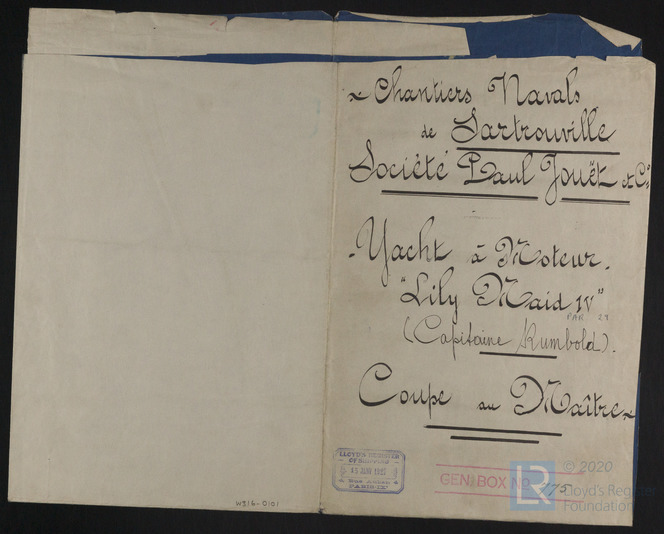 Chantiers Navals
de Sartrouville
Société Paul Jouët et Cie
- Yacht à Moteur -
"Lily Maid IV"
PAR 29
(Capitaine Rumbold).
Coupe au Maître
LLOYD'S REGISTER
OF SHIPPING
15 JUIN 1927
PARIS-IXe
GEN. BOX NO 175
W516-0101
LR
© 2020
Lloyd's Register
Foundation